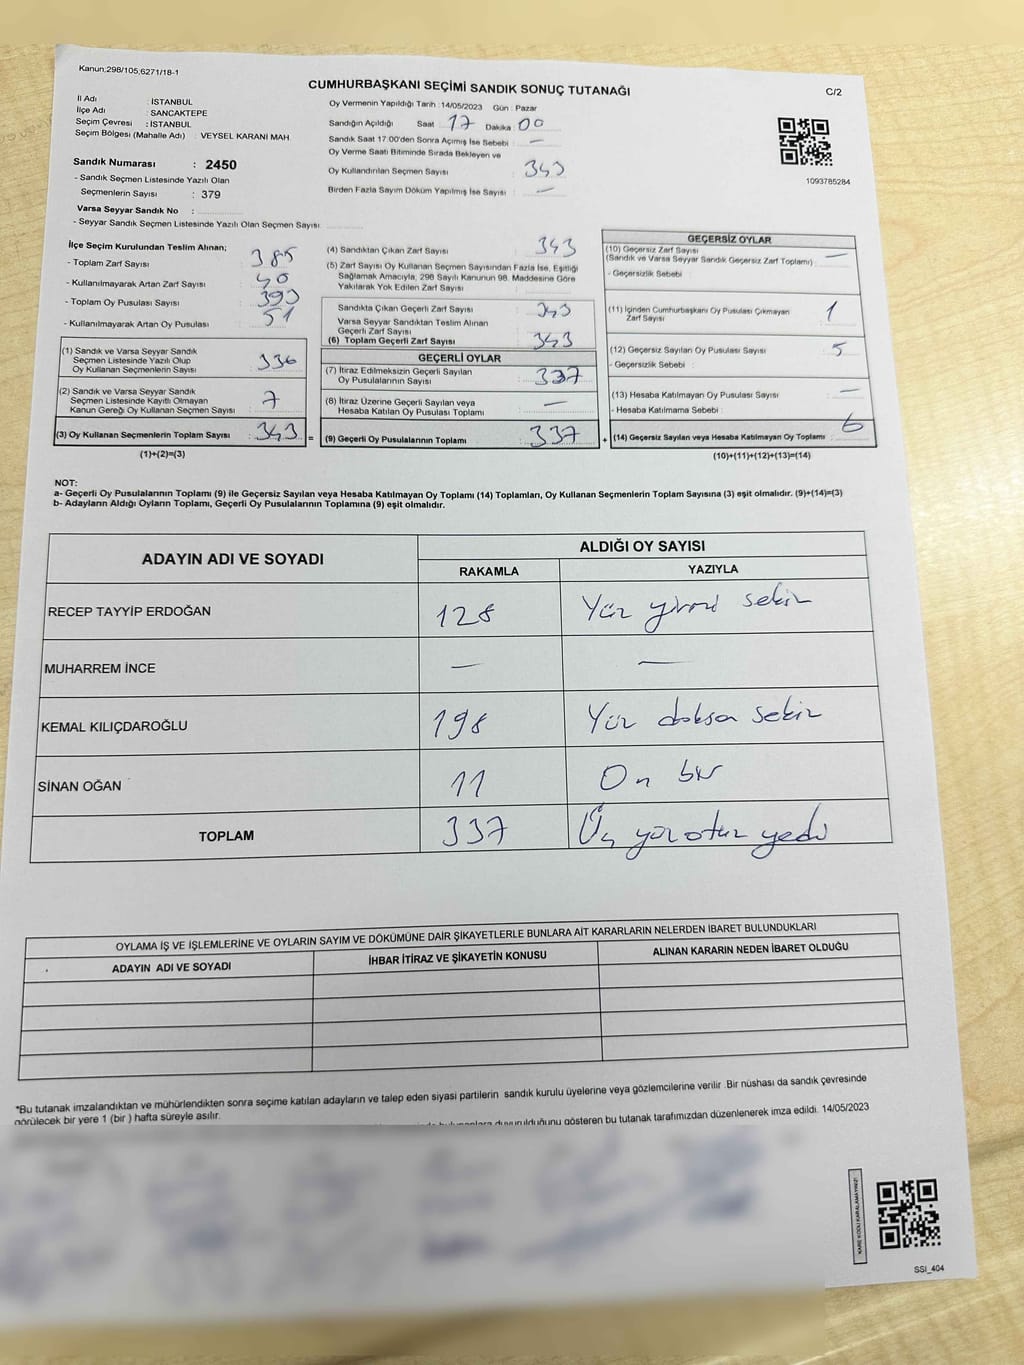 Kanun:298/105;6271/18-1
CUMHURBAŞKANI SEÇİMİ SANDIK SONUÇ TUTANAĞI
C/2
İl Adı : İSTANBUL
İlçe Adı : SANCAKTEPE
Seçim Çevresi : İSTANBUL
Seçim Bölgesi (Mahalle Adı) : VEYSEL KARANİ MAH.
Sandık Numarası : 2450
- Sandık Seçmen Listesinde Yazılı Olan
Seçmenlerin Sayısı : 379
Varsa Seyyar Sandık No :
- Seyyar Sandık Seçmen Listesinde Yazılı Olan Seçmen Sayısı
Oy Vermenin Yapıldığı Tarih :14/05/2023 Gün : Pazar
Sandığın Açıldığı Saat 17 Dakika 00
Sandık Saat 17:00'den Sonra Açımış İse Sebebi : —
Oy Verme Saati Bitiminde Sırada Bekleyen ve
Oy Kullandırılan Seçmen Sayısı 343
Birden Fazla Sayım Döküm Yapılmış İse Sayısı : —
1093785284
İlçe Seçim Kurulundan Teslim Alınan;
- Toplam Zarf Sayısı 385
- Kullanılmayarak Artan Zarf Sayısı 40
- Toplam Oy Pusulası Sayısı 393
- Kullanılmayarak Artan Oy Pusulası 51
(1) Sandık ve Varsa Seyyar Sandık
Seçmen Listesinde Yazılı Olup
Oy Kullanan Seçmenlerin Sayısı 336
(2) Sandık ve Varsa Seyyar Sandık
Seçmen Listesinde Kayıtlı Olmayan
Kanun Gereği Oy Kullanan Seçmen Sayısı 7
(3) Oy Kullanan Seçmenlerin Toplam Sayısı 343 =
(1)+(2)=(3)
(4) Sandıktan Çıkan Zarf Sayısı 343
(5) Zarf Sayısı Oy Kullanan Seçmen Sayısından Fazla İse, Eşitliği
Sağlamak Amacıyla, 298 Sayılı Kanunun 98. Maddesine Göre
Yakılarak Yok Edilen Zarf Sayısı
Sandıkta Çıkan Geçerli Zarf Sayısı 343
Varsa Seyyar Sandıktan Teslim Alınan
Geçerli Zarf Sayısı
(6) Toplam Geçerli Zarf Sayısı 343
GEÇERLİ OYLAR
(7) İtiraz Edilmeksizin Geçerli Sayılan
Oy Pusulalarının Sayısı 337
(8) İtiraz Üzerine Geçerli Sayılan veya
Hesaba Katılan Oy Pusulası Toplamı —
(9) Geçerli Oy Pusulalarının Toplamı 337 +
GEÇERSİZ OYLAR
(10) Geçersiz Zarf Sayısı
(Sandık ve Varsa Seyyar Sandık Geçersiz Zarf Toplamı) —
- Geçersizlik Sebebi :
(11) İçinden Cumhurbaşkanı Oy Pusulası Çıkmayan
Zarf Sayısı 1
(12) Geçersiz Sayılan Oy Pusulası Sayısı 5
- Geçersizlik Sebebi :
(13) Hesaba Katılmayan Oy Pusulası Sayısı —
- Hesaba Katılmama Sebebi :
(14) Geçersiz Sayılan veya Hesaba Katılmayan Oy Toplamı 6
(10)+(11)+(12)+(13)=(14)
NOT:
a- Geçerli Oy Pusulalarının Toplamı (9) ile Geçersiz Sayılan veya Hesaba Katılmayan Oy Toplamı (14) Toplamları, Oy Kullanan Seçmenlerin Toplam Sayısına (3) eşit olmalıdır. (9)+(14)=(3)
b- Adayların Aldığı Oyların Toplamı, Geçerli Oy Pusulalarının Toplamına (9) eşit olmalıdır.
ADAYIN ADI VE SOYADI
ALDIĞI OY SAYISI
RAKAMLA YAZIYLA
RECEP TAYYİP ERDOĞAN 128 Yüz yirmi sekiz
MUHARREM İNCE — —
KEMAL KILIÇDAROĞLU 198 Yüz doksan sekiz
SİNAN OĞAN 11 On bir
TOPLAM 337 Üç yüz otuz yedi
OYLAMA İŞ VE İŞLEMLERİNE VE OYLARIN SAYIM VE DÖKÜMÜNE DAİR ŞİKAYETLERLE BUNLARA AİT KARARLARIN NELERDEN İBARET BULUNDUKLARI
ADAYIN ADI VE SOYADI İHBAR İTİRAZ VE ŞİKAYETİN KONUSU ALINAN KARARIN NEDEN İBARET OLDUĞU
*Bu tutanak imzalandıktan ve mühürlendikten sonra seçime katılan adayların ve talep eden siyasi partilerin sandık kurulu üyelerine veya gözlemcilerine verilir .Bir nüshası da sandık çevresinde
görülecek bir yere 1 (bir ) hafta süreyle asılır.
duyurulduğunu gösteren bu tutanak tarafımızdan düzenlenerek imza edildi. 14/05/2023
KARE KODU KARALAMAYINIZ!
SSI_404